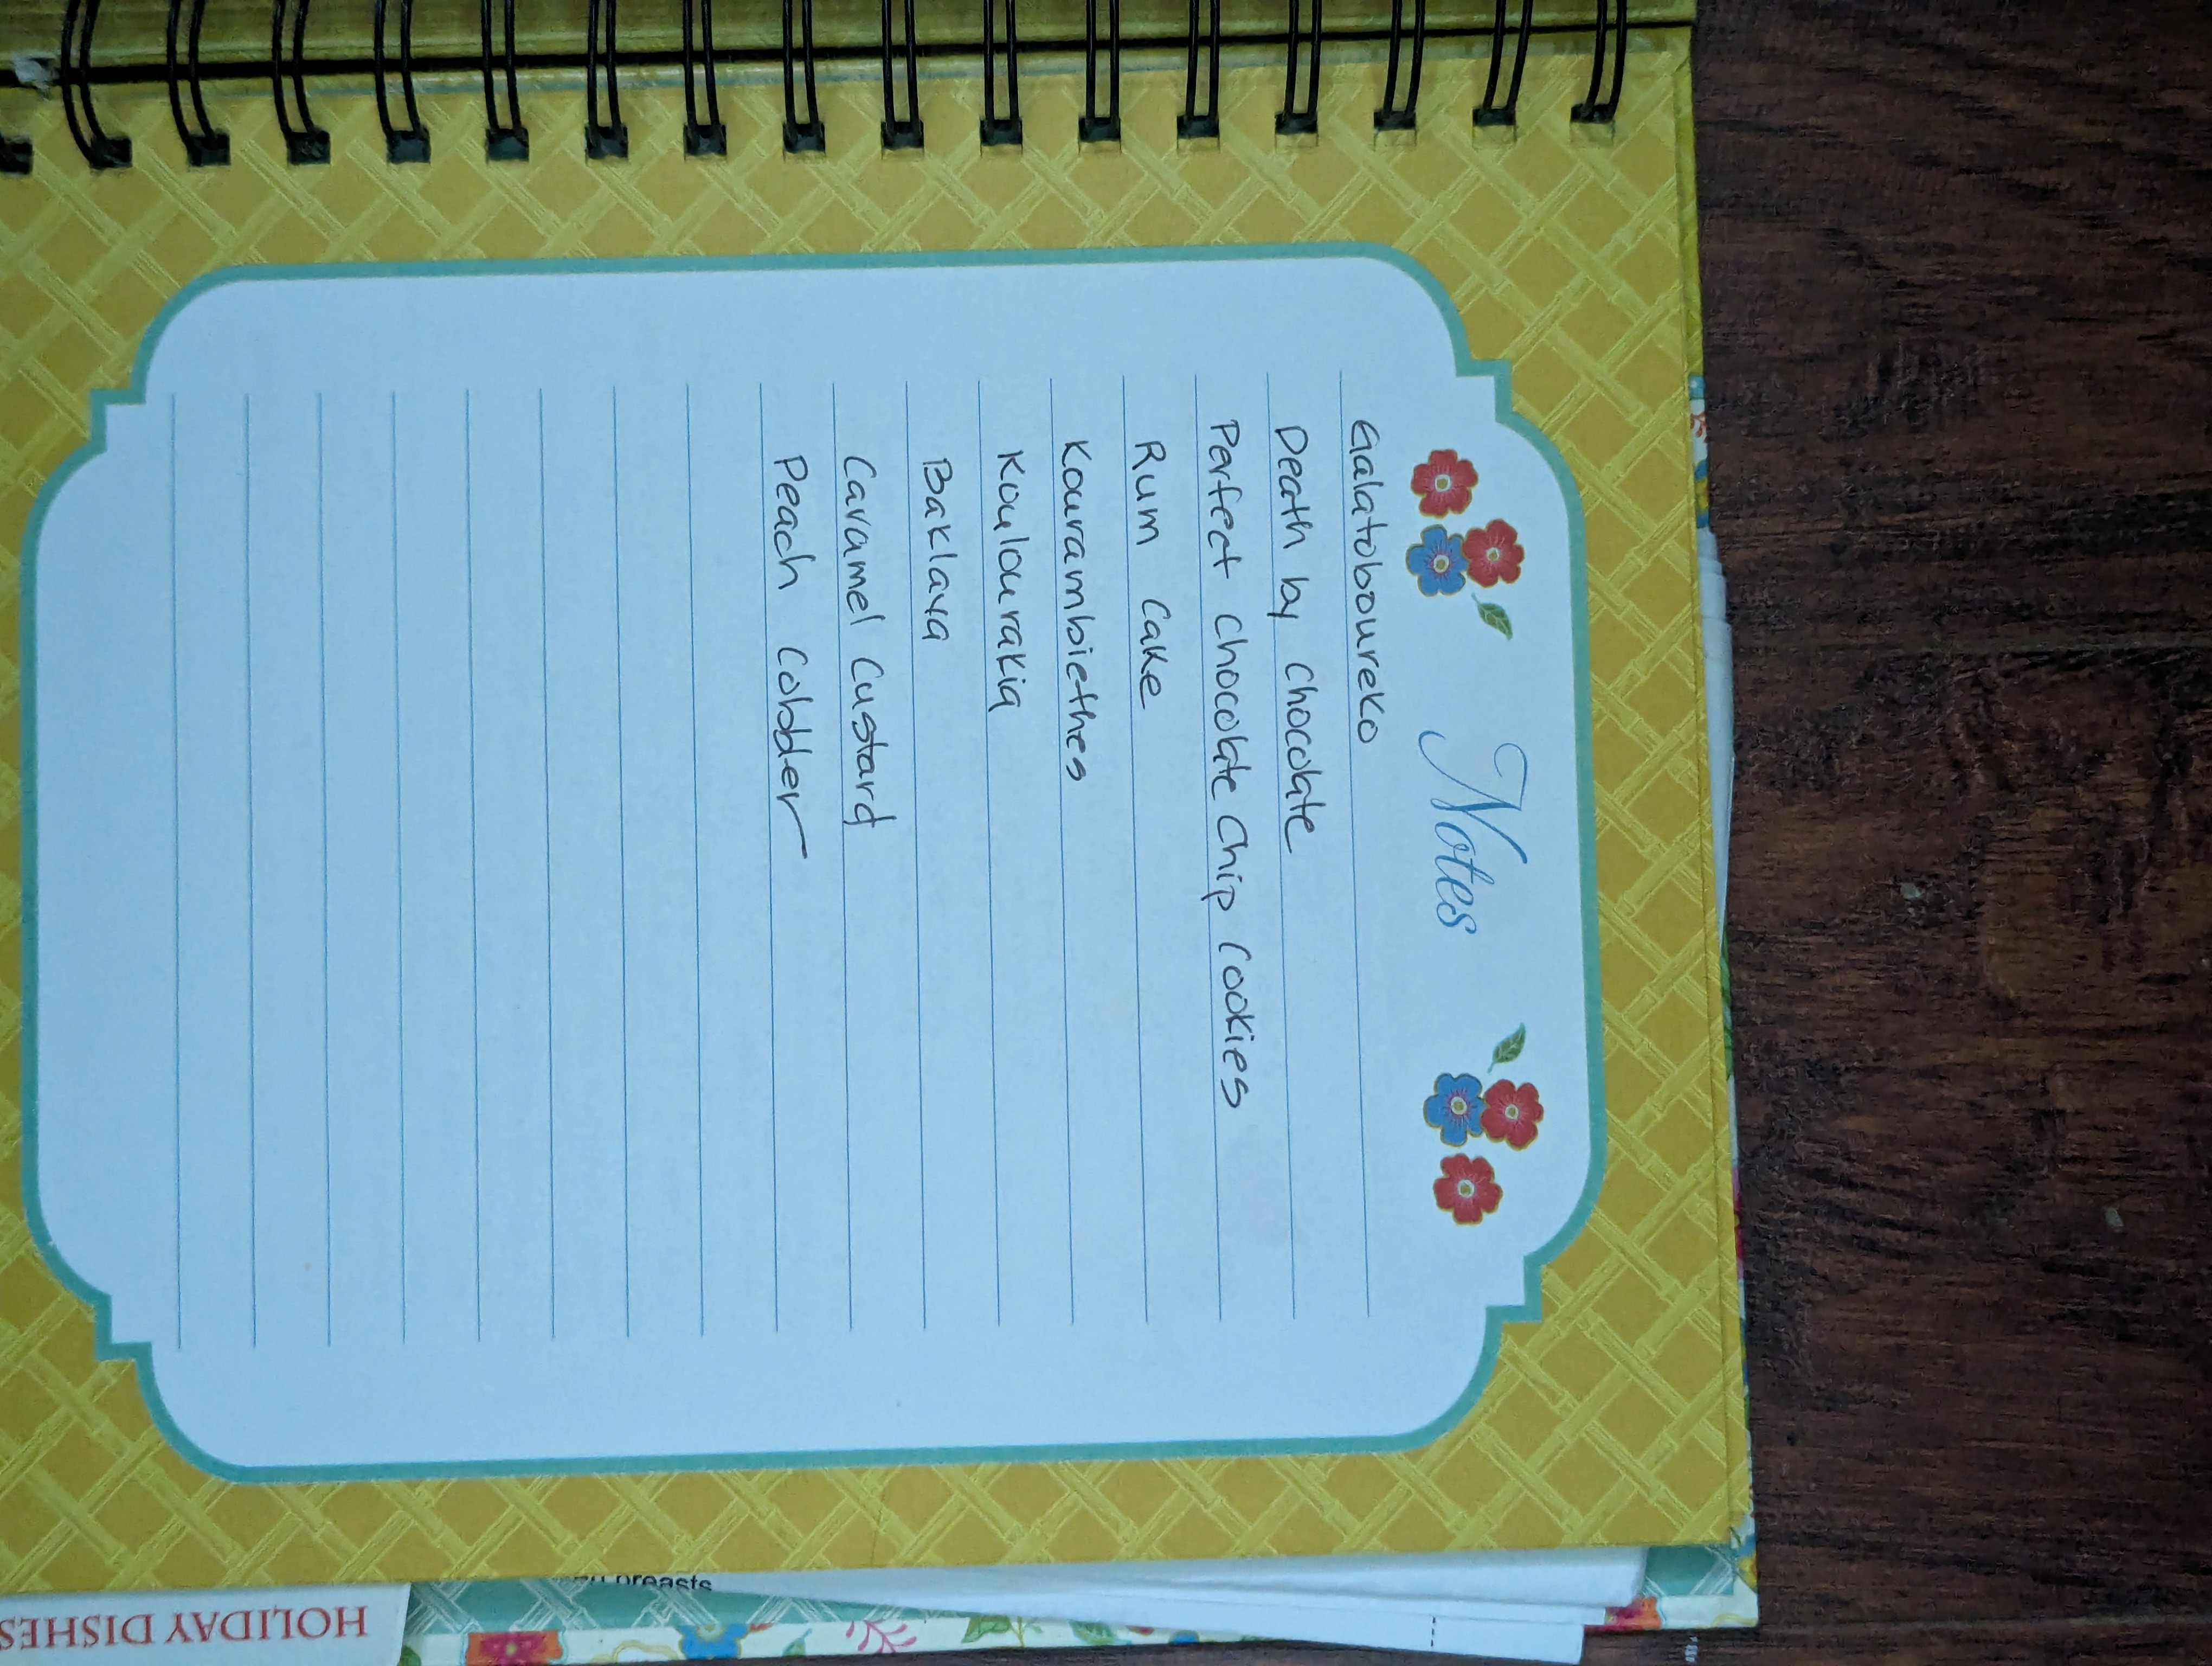 Notes
Galatoboureko
Death by Chocolate
Perfect Chocolate Chip Cookies
Rum Cake
Kourambiethes
Koulourakia
Baklava
Caramel Custard
Peach Cobbler
breasts
HOLIDAY DISHES